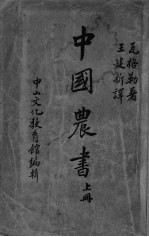 瓦格勒著
王建新譯
中國農書 上冊
中山文化教育館編輯